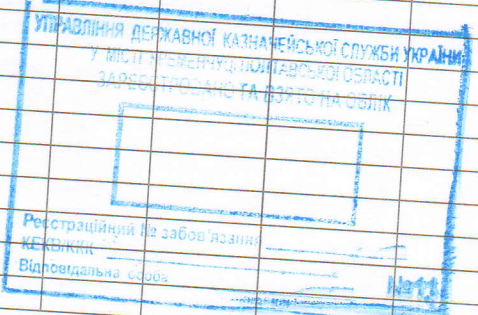 УПРАВЛІННЯ ДЕРЖАВНОЇ КАЗНАЧЕЙСЬКОЇ СЛУЖБИ УКРАЇНИ
У МІСТІ КРЕМЕНЧУЦІ ПОЛТАВСЬКОЇ ОБЛАСТІ
ЗАРЕЄСТРОВАНО ТА ВЗЯТО НА ОБЛІК
Реєстраційний № забов'язання
КЕКВ/ККК
Відповідальна особа
№11